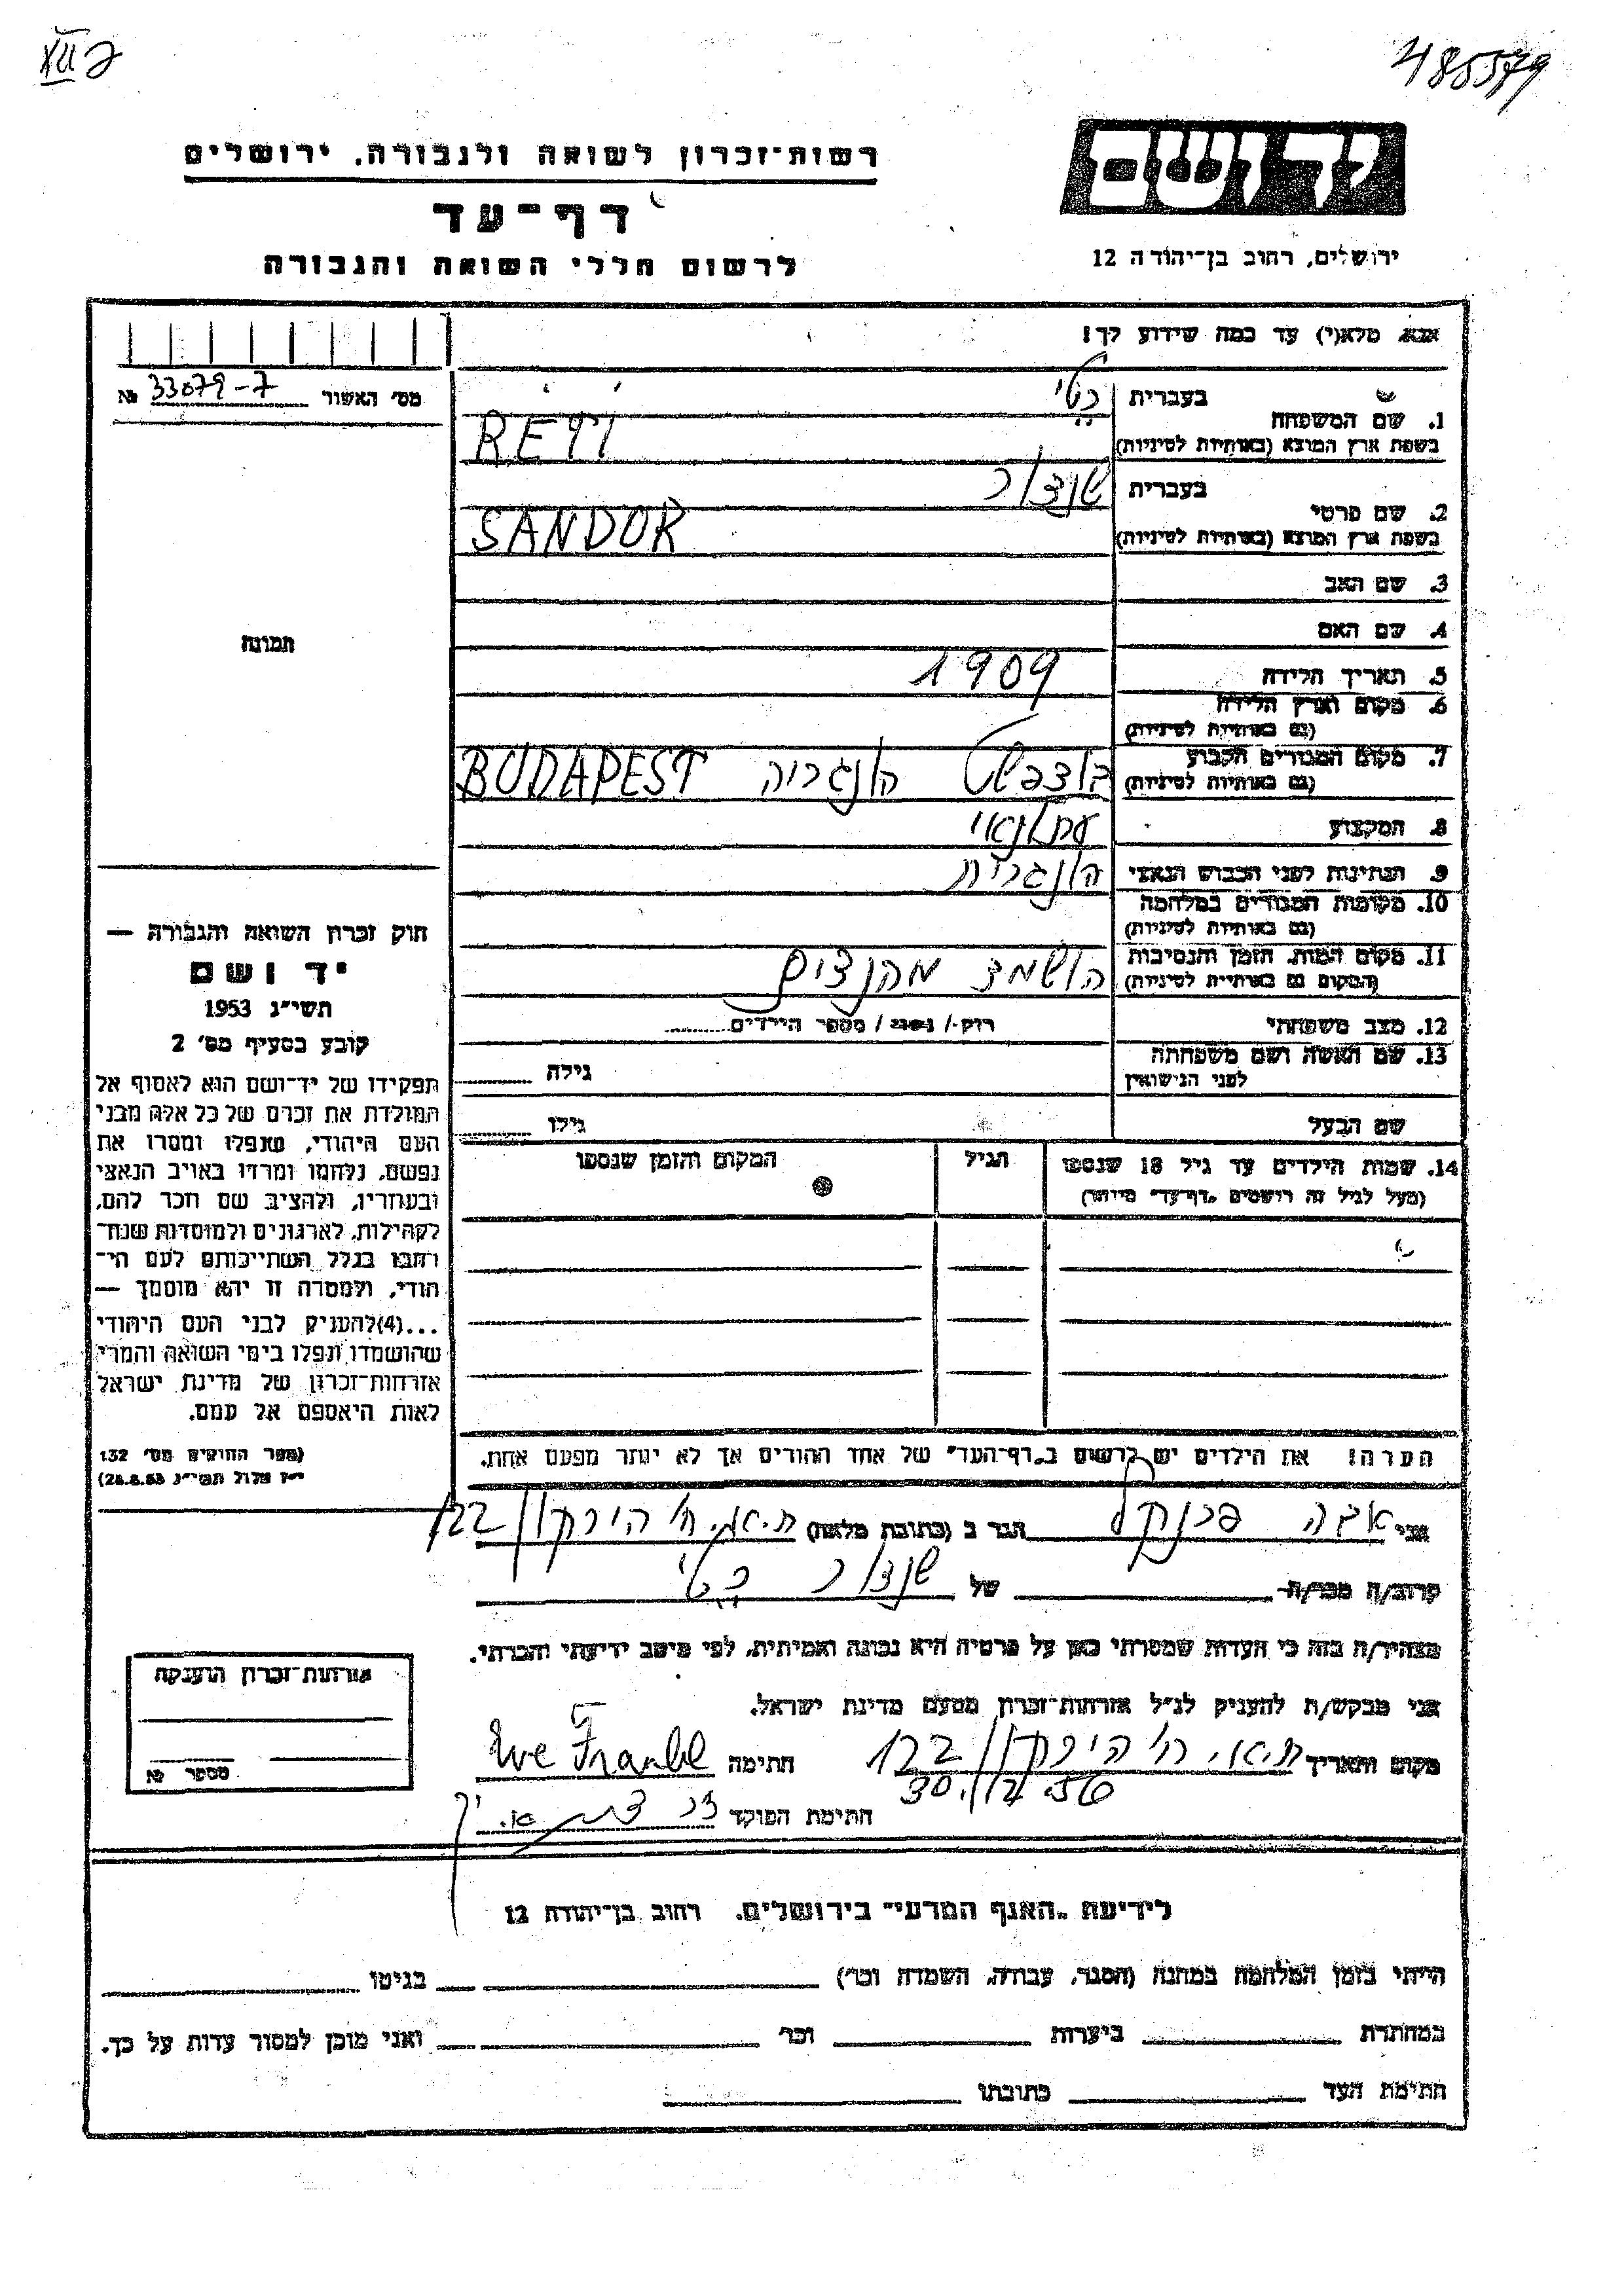 485579
רשות־זכרון לשואה ולגבורה, ירושלים
דף־עד
לרשום חללי השואה והגבורה
ירושלים, רחוב בן־יהודה 12
אנא מלא(י) עד כמה שידוע לך!
מס' האשור 33079-7 №
תמונה
1. שם המשפחה בעברית רטי
בשפת ארץ המוצא (באותיות לטיניות) RÉTI
2. שם פרטי בעברית שנדור
בשפת ארץ המוצא (באותיות לטיניות) SANDOR
3. שם האב
4. שם האם
5. תאריך הלידה 1909
6. מקום וארץ הלידה
(גם באותיות לטיניות)
7. מקום המגורים הקבוע בודפשט הונגריה BUDAPEST
(גם באותיות לטיניות)
8. המקצוע עתונאי
9. הנתינות לפני הכבוש הנאצי הונגרית
10. מקומות המגורים במלחמה
(גם באותיות לטיניות)
11. מקום המות, הזמן והנסיבות הושמד מהנצים
(המקום גם באותיות לטיניות)
12. מצב משפחתי רוק / נשוי / מספר הילדים
13. שם האשה ושם משפחתה גילה
לפני הנישואין
שם הבעל גילו
14. שמות הילדים עד גיל 18 שנספו הגיל המקום והזמן שנספו
(מעל לגיל זה רושמים „דף־עד" מיוחד)
חוק זכרון השואה והגבורה —
יד ושם
תשי"ג 1953
קובע בסעיף מס' 2
תפקידו של יד־ושם הוא לאסוף אל
המולדת את זכרם של כל אלה מבני
העם היהודי, שנפלו ומסרו את
נפשם, נלחמו ומרדו באויב הנאצי
ובעוזריו, ולהציב שם וזכר להם,
לקהילות, לארגונים ולמוסדות שנח־
רבו בגלל השתייכותם לעם הי־
הודי, ולמטרה זו יהא מוסמך —
...(4) להעניק לבני העם היהודי
שהושמדו ונפלו בימי השואה והמרי
אזרחות־זכרון של מדינת ישראל
לאות היאספם אל עמם.
(ספר החוקים מס' 132
י"ז אלול תשי"ג 28.8.53)
הערה! את הילדים יש לרשום ב„דף־העד" של אחד ההורים אך לא יותר מפעם אחת.
אני אוה פרנקל הגר ב (כתובת מלאה) ת.א. רח' הירקון 122
קרוב/ה מכר/ה של שנדור רטי
מצהיר/ה בזה כי העדות שמסרתי כאן על פרטיה היא נכונה ואמיתית, לפי מיטב ידיעתי והכרתי.
אני מבקש/ת להעניק לנ"ל אזרחות־זכרון מטעם מדינת ישראל.
מקום ותאריך ת.א. רח' הירקון 122 חתימה Eve Frankl
30.12.56
חתימת הפוקד
אזרחות־זכרון הוענקה
מספר №
לידיעת „האגף המדעי" בירושלים, רחוב בן־יהודה 12
הייתי בזמן המלחמה במחנה (הסגר, עבודה, השמדה וכו') בגיטו
במחתרת ביערות וכו' ואני מוכן למסור עדות על כך.
חתימת העד כתובתו